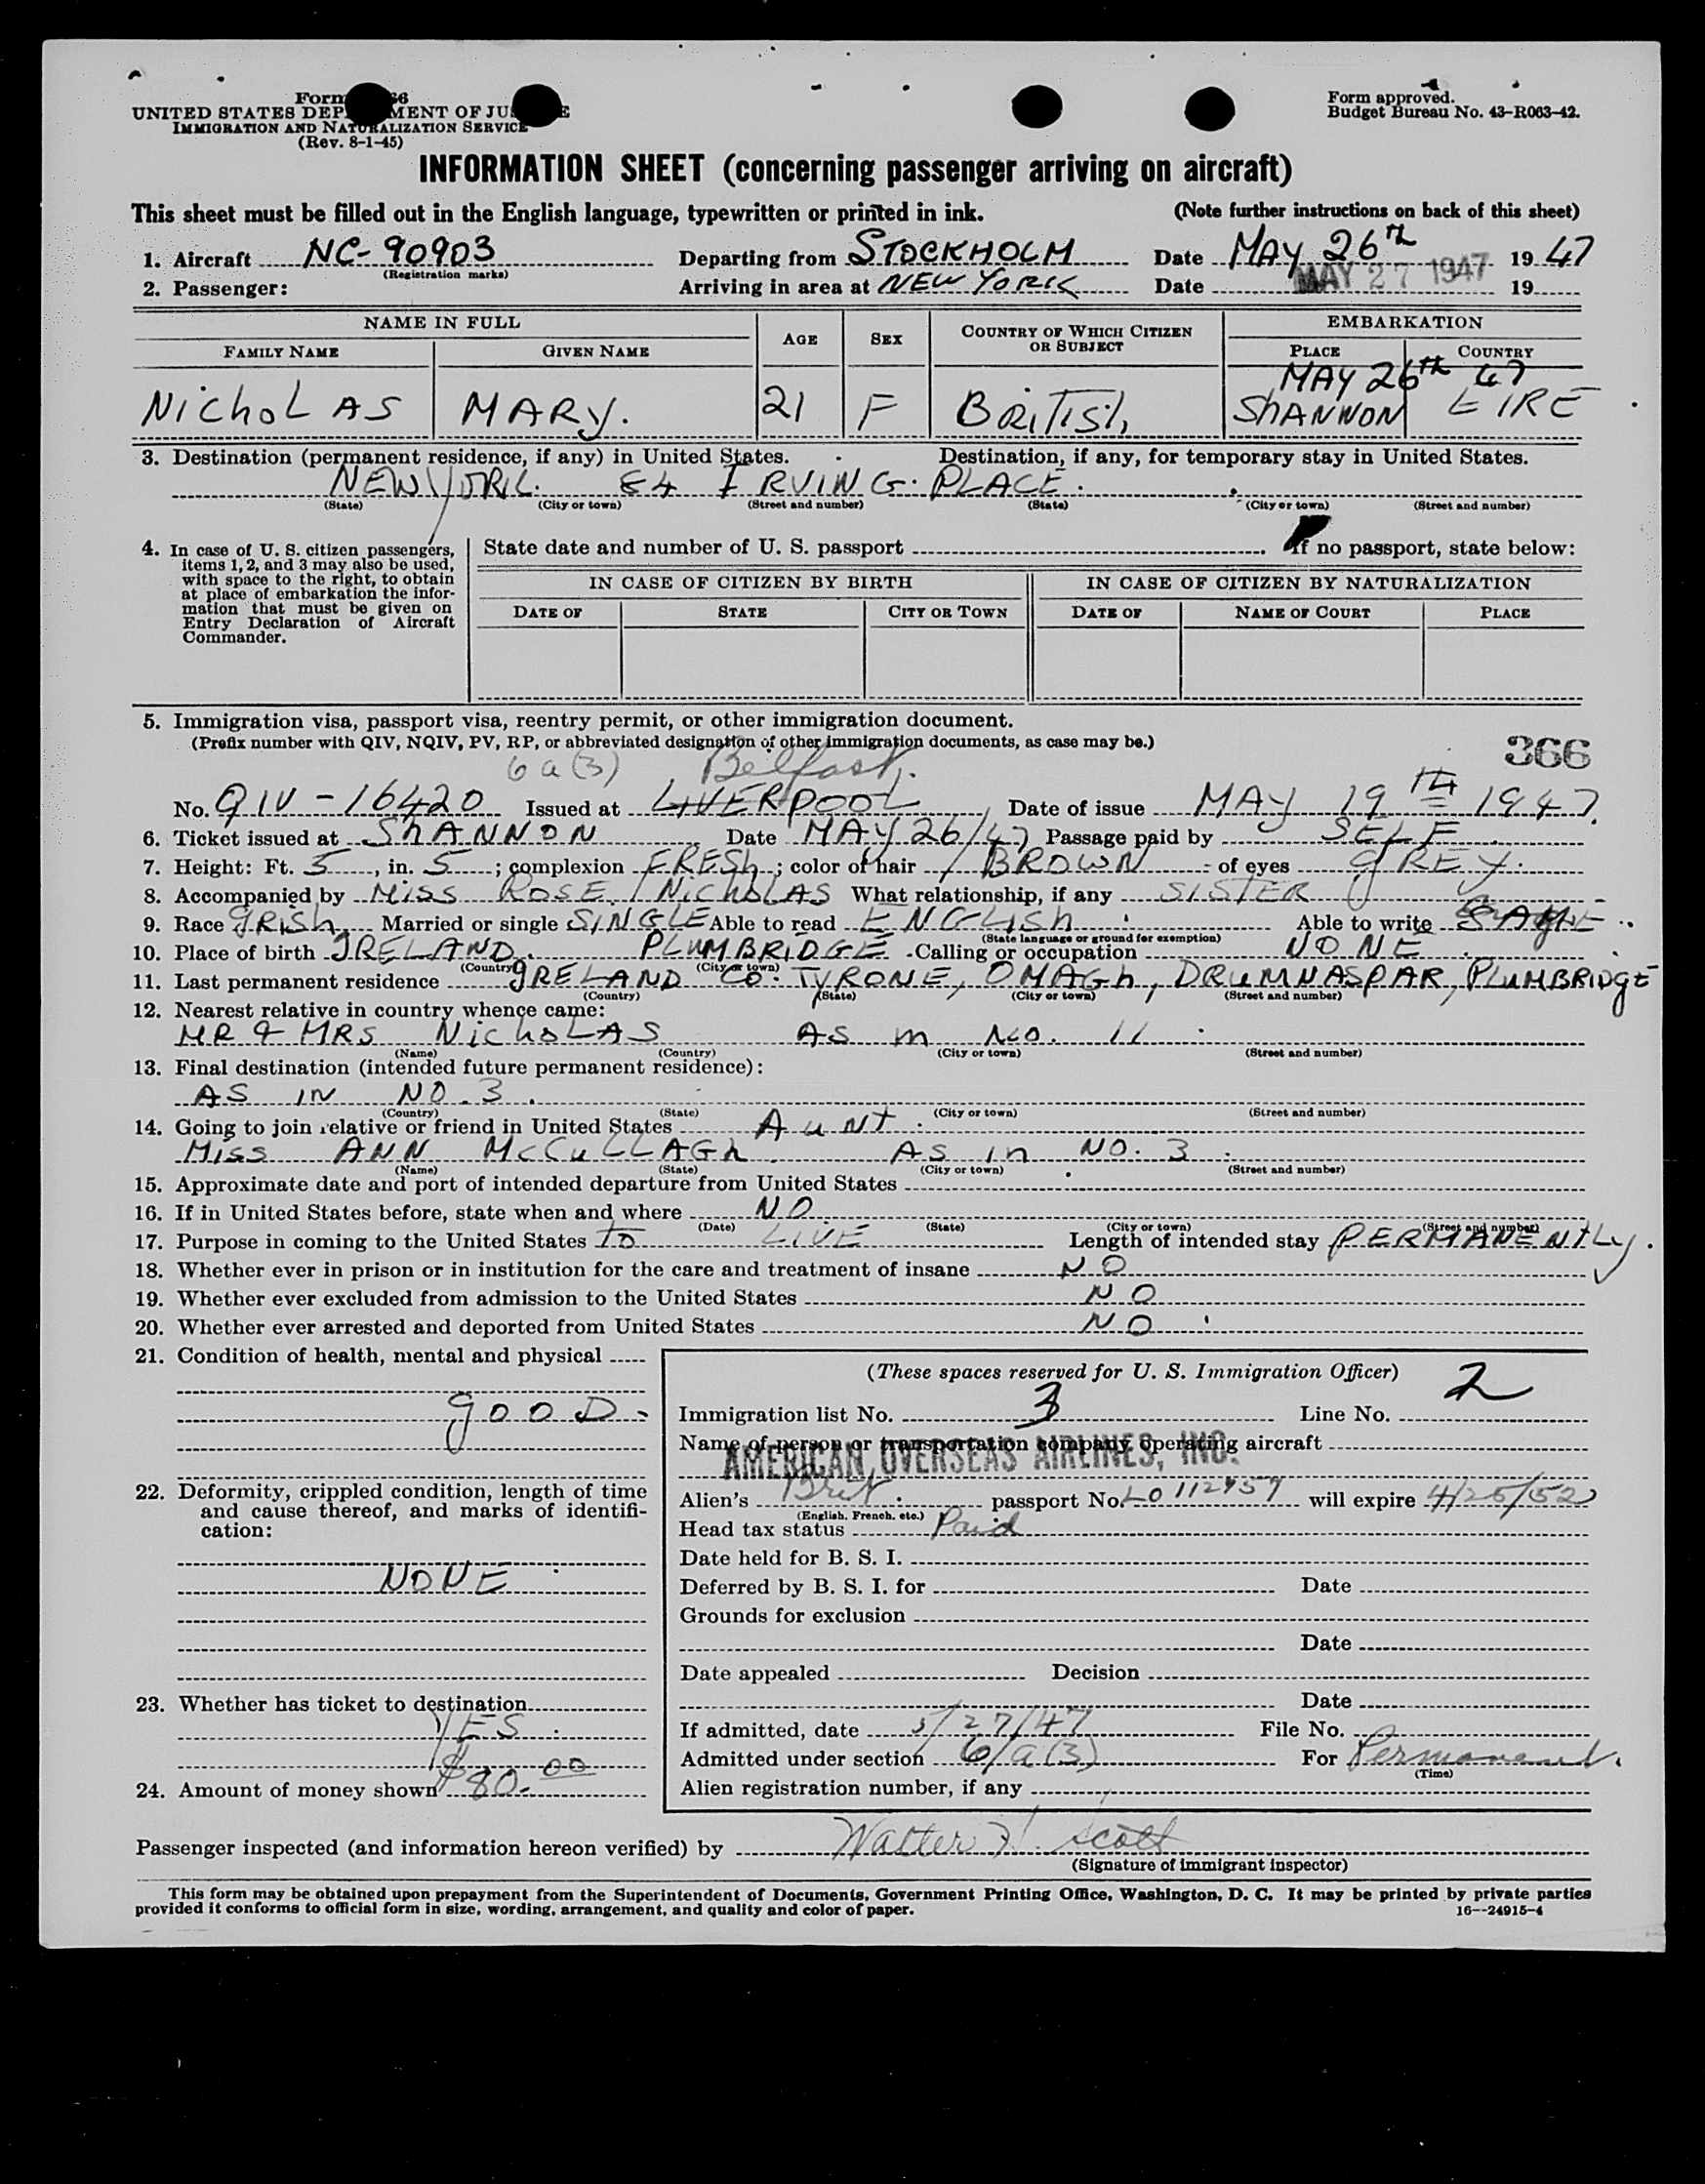 Form 66
UNITED STATES DEP MENT OF JUS E
IMMIGRATION AND NATURALIZATION SERVICE
(Rev. 8-1-45)
Form approved.
Budget Bureau No. 43-R063-42.
INFORMATION SHEET (concerning passenger arriving on aircraft)
This sheet must be filled out in the English language, typewritten or printed in ink. (Note further instructions on back of this sheet)
1. Aircraft NC-90903 Departing from STOCKHOLM Date MAY 26th 1947
(Registration marks)
2. Passenger: Arriving in area at NEW YORK Date MAY 27 1947 19
NAME IN FULL AGE SEX COUNTRY OF WHICH CITIZEN OR SUBJECT EMBARKATION
FAMILY NAME GIVEN NAME PLACE COUNTRY
MAY 26th 47
NichoLAS MARY. 21 F BRITISh ShANNON EIRE
3. Destination (permanent residence, if any) in United States. Destination, if any, for temporary stay in United States.
NEW YORK. 64 IRVING. PLACE.
(State) (City or town) (Street and number) (State) (City or town) (Street and number)
4. In case of U. S. citizen passengers, items 1, 2, and 3 may also be used, with space to the right, to obtain at place of embarkation the information that must be given on Entry Declaration of Aircraft Commander.
State date and number of U. S. passport . If no passport, state below:
IN CASE OF CITIZEN BY BIRTH IN CASE OF CITIZEN BY NATURALIZATION
DATE OF STATE CITY OR TOWN DATE OF NAME OF COURT PLACE
5. Immigration visa, passport visa, reentry permit, or other immigration document.
(Prefix number with QIV, NQIV, PV, RP, or abbreviated designation of other immigration documents, as case may be.)
366
6a(3) Belfast.
No. QIV-16420 Issued at LIVERPOOL Date of issue MAY 19TH 1947.
6. Ticket issued at ShANNON Date MAY 26/47 Passage paid by SELF.
7. Height: Ft. 5, in. 5; complexion FRESh; color of hair BROWN of eyes gREY.
8. Accompanied by MiSS ROSE NichOLAS What relationship, if any SISTER
9. Race IRISh Married or single SINGLE Able to read ENGLISh Able to write SAME
(State language or ground for exemption)
10. Place of birth IRELAND. PLUMBRIDGE. Calling or occupation NONE.
(Country) (City or town)
11. Last permanent residence IRELAND CO. TYRONE, OMAGh, DRUMNASPAR, PLUMBRIDGE
(Country) (State) (City or town) (Street and number)
12. Nearest relative in country whence came:
MR & MRS NichoLAS AS in NO. 11.
(Name) (Country) (City or town) (Street and number)
13. Final destination (intended future permanent residence):
AS IN NO. 3.
(Country) (State) (City or town) (Street and number)
14. Going to join relative or friend in United States AuNT.
MiSS ANN McCuLLAGh. AS in NO. 3.
(Name) (State) (City or town) (Street and number)
15. Approximate date and port of intended departure from United States
16. If in United States before, state when and where NO.
(Date) (State) (City or town) (Street and number)
17. Purpose in coming to the United States TO LIVE Length of intended stay PERMANENTLy.
18. Whether ever in prison or in institution for the care and treatment of insane NO
19. Whether ever excluded from admission to the United States NO
20. Whether ever arrested and deported from United States NO
21. Condition of health, mental and physical
gOOD.
22. Deformity, crippled condition, length of time and cause thereof, and marks of identification:
NONE
23. Whether has ticket to destination
YES.
24. Amount of money shown $80.00
(These spaces reserved for U. S. Immigration Officer)
Immigration list No. 3 Line No. 2
Name of person or transportation company operating aircraft
AMERICAN OVERSEAS AIRLINES, INC.
Alien's Brit. passport No. LO112957 will expire 4/25/52
(English, French, etc.)
Head tax status Paid
Date held for B. S. I.
Deferred by B. S. I. for Date
Grounds for exclusion
Date
Date appealed Decision
Date
If admitted, date 5/27/47 File No.
Admitted under section 6/a(3) For Permanent.
(Time)
Alien registration number, if any
Passenger inspected (and information hereon verified) by Walter H. Scott
(Signature of immigrant inspector)
This form may be obtained upon prepayment from the Superintendent of Documents, Government Printing Office, Washington, D. C. It may be printed by private parties
provided it conforms to official form in size, wording, arrangement, and quality and color of paper. 16--24915-4